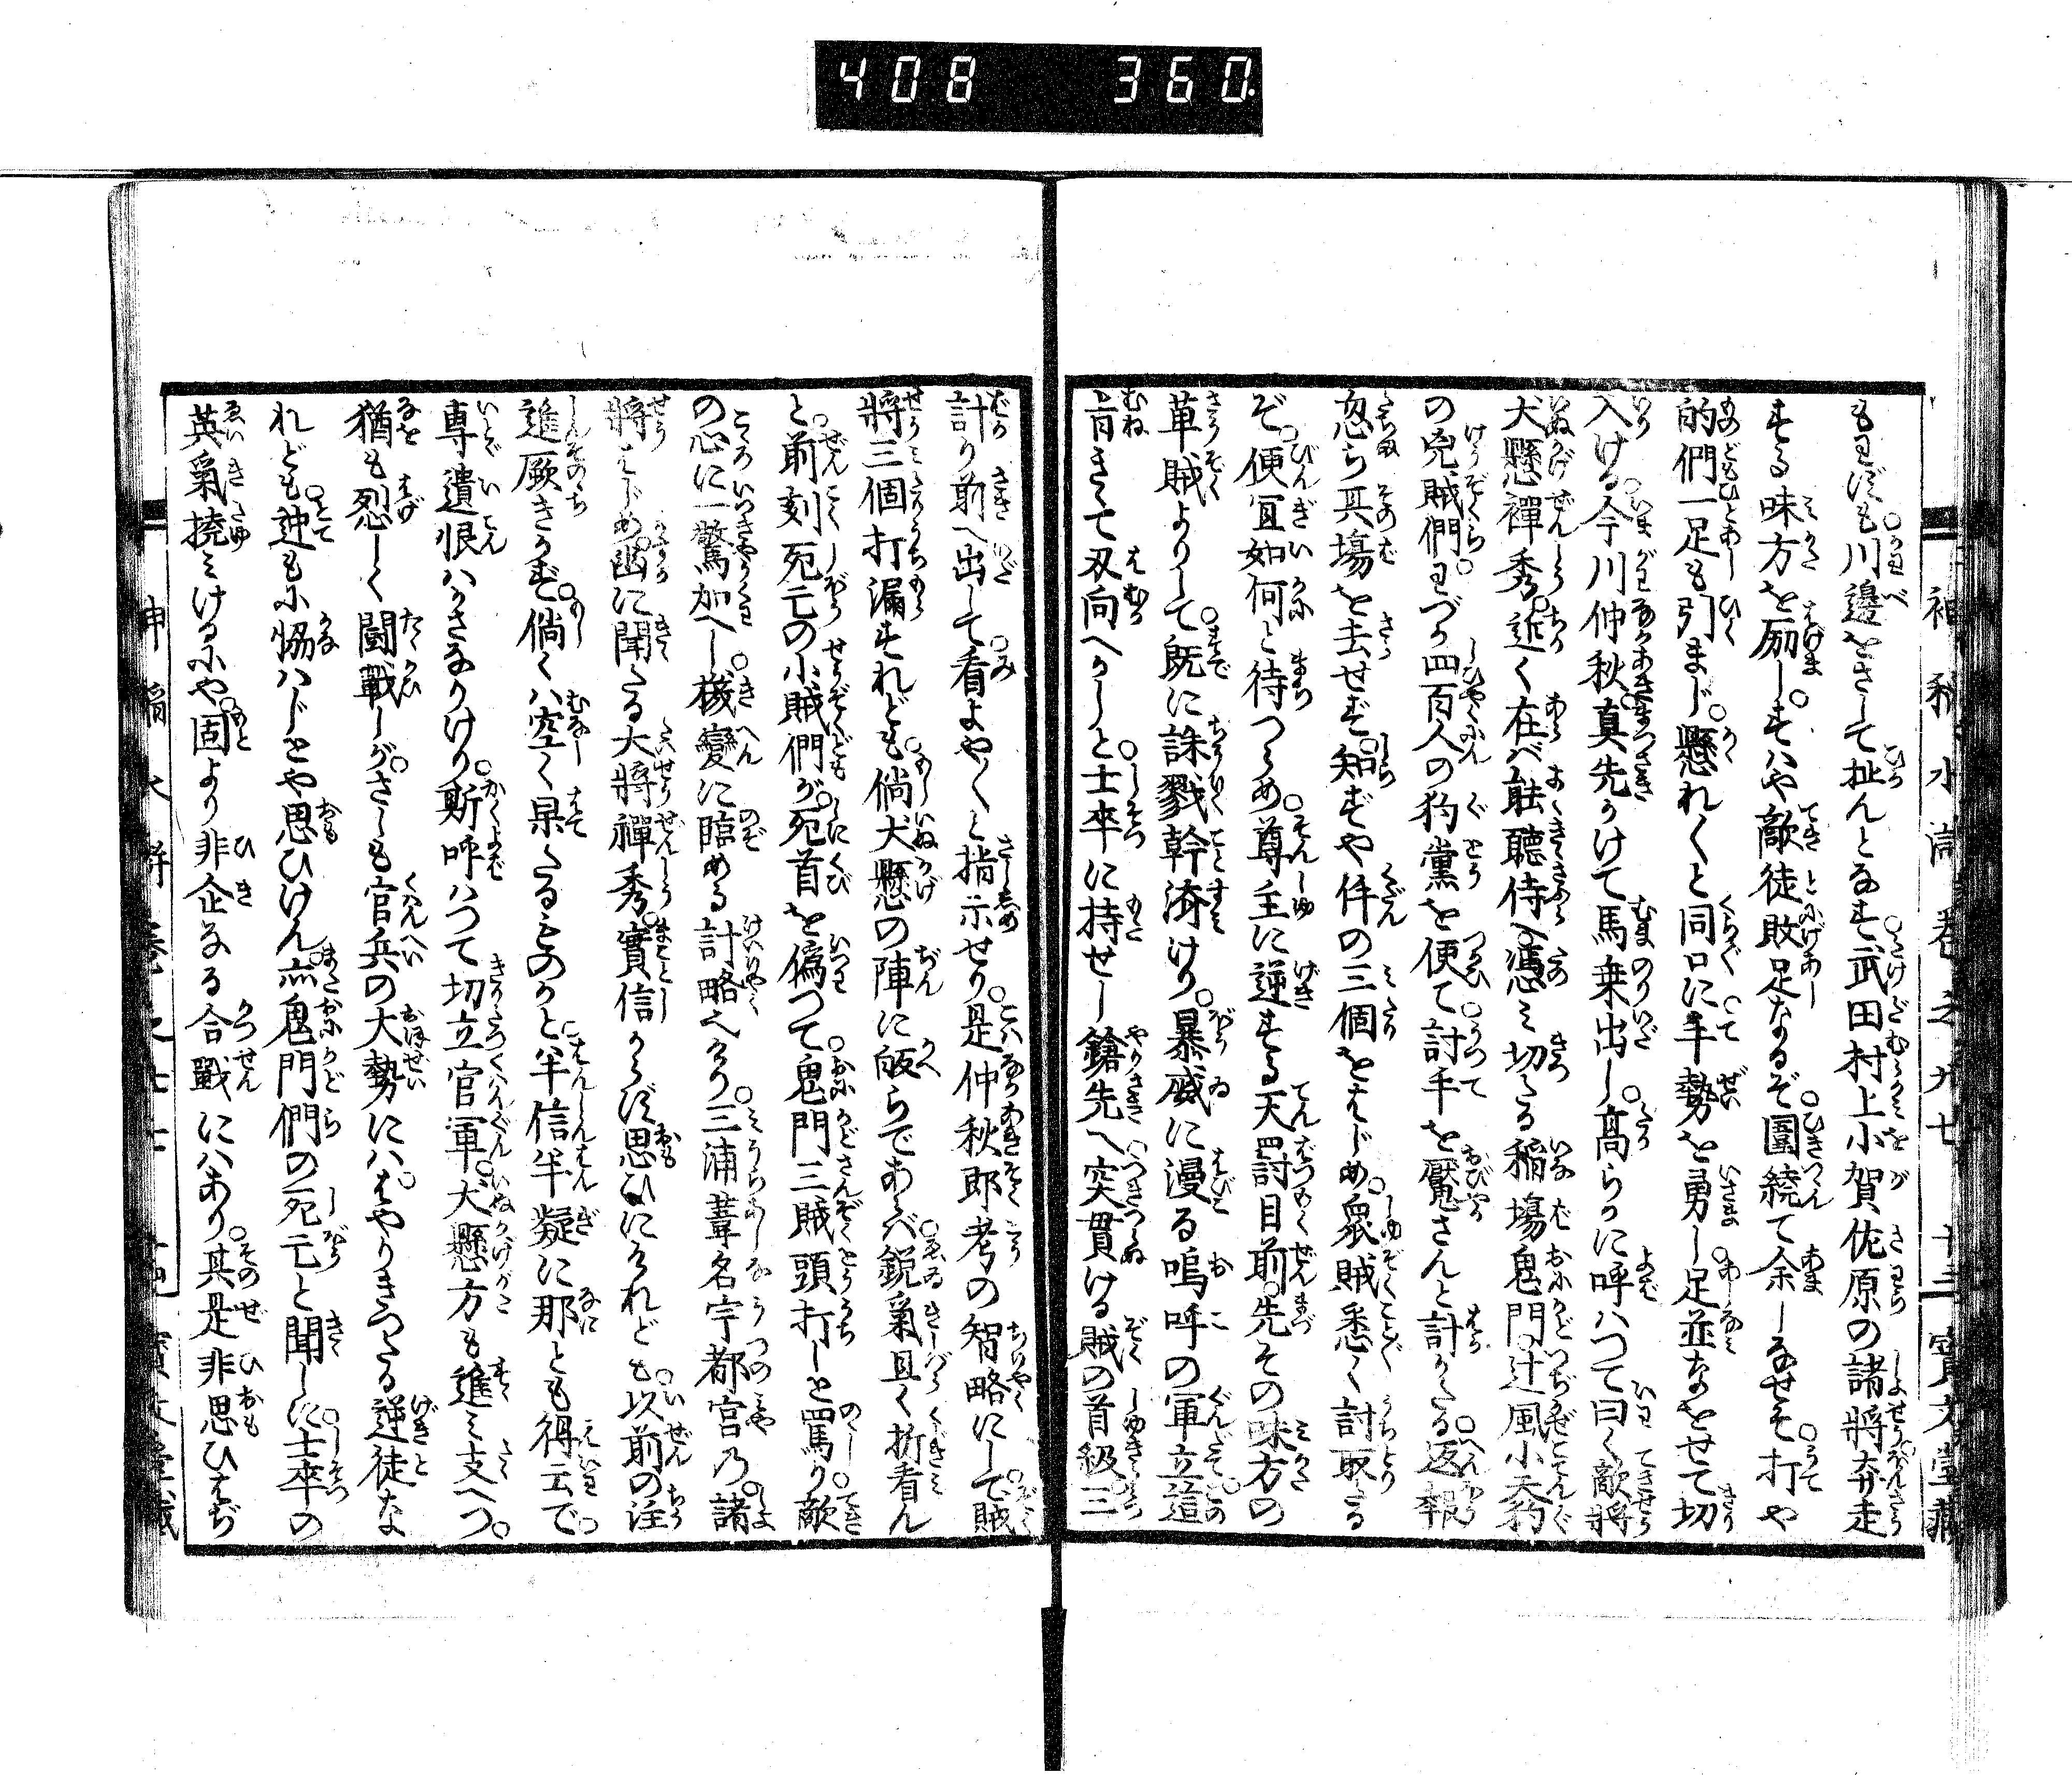 408 360.
もわず川邊をさして扯んとなす武田村上小賀佐原の諸將奔走
する味方を励し。すハや敵徒敗足なるぞ圍繞て余しなせそ打や
的們一足も引まじ。懸れ〳〵と同口に手勢を勇し足並なをせて切
入ける今川仲秋真先かけて馬乗出し。高らかに呼ハつて曰く敵將
犬懸禪秀近く在バ能聽侍へ憑ミ切たる稲塲鬼門辻風小天狗
の兇賊們。わづか四百人の狗黨を便て討手を魘さんと計かたる返報
忽ち其塲を去せず知ずや件の三個をはじめ衆賊悉く討取たる
ぞ。便宜如何と待つらめ尊主に逆する天罰目前先その味方の
草賊よりして。既に誅戮幹濟けり。暴威に漫る嗚呼の軍立這
旨きて刄向へかしと士卒に持せし鎗先へ突貫ける賊の首級三
計り前へ出して看よや〳〵と指示せり。是仲秋郎考の智略にして賊
將三個打漏すれども倘犬懸の陣に皈らであらバ鋭氣且く折看ん
と。前刻死亡の小賊們が死首を偽つて鬼門三賊頭打しと罵り敵
の心に一驚加へし機變に臨める計略へけり。三浦葦名宇都宮乃諸
將はじめ。幽に聞たる大將禪秀實信からず思ひにけれども以前の注
進厥きかず。倘くハ空く果たるものかと半信半疑に那とも得云で
専遺恨ハかさなりけり。斯呼ハつて切立官軍。犬懸方も進ミ支へつ。
猶も烈しく闘戰しが。さしも官兵の大勢にハはやりきつたる逆徒な
れども迚も小協ハじとや思ひけん。亦鬼門們の死亡と聞しに士卒の
英氣撓ミけるにや。固より非企なる合戰にハあり。其是非思ひはぢ